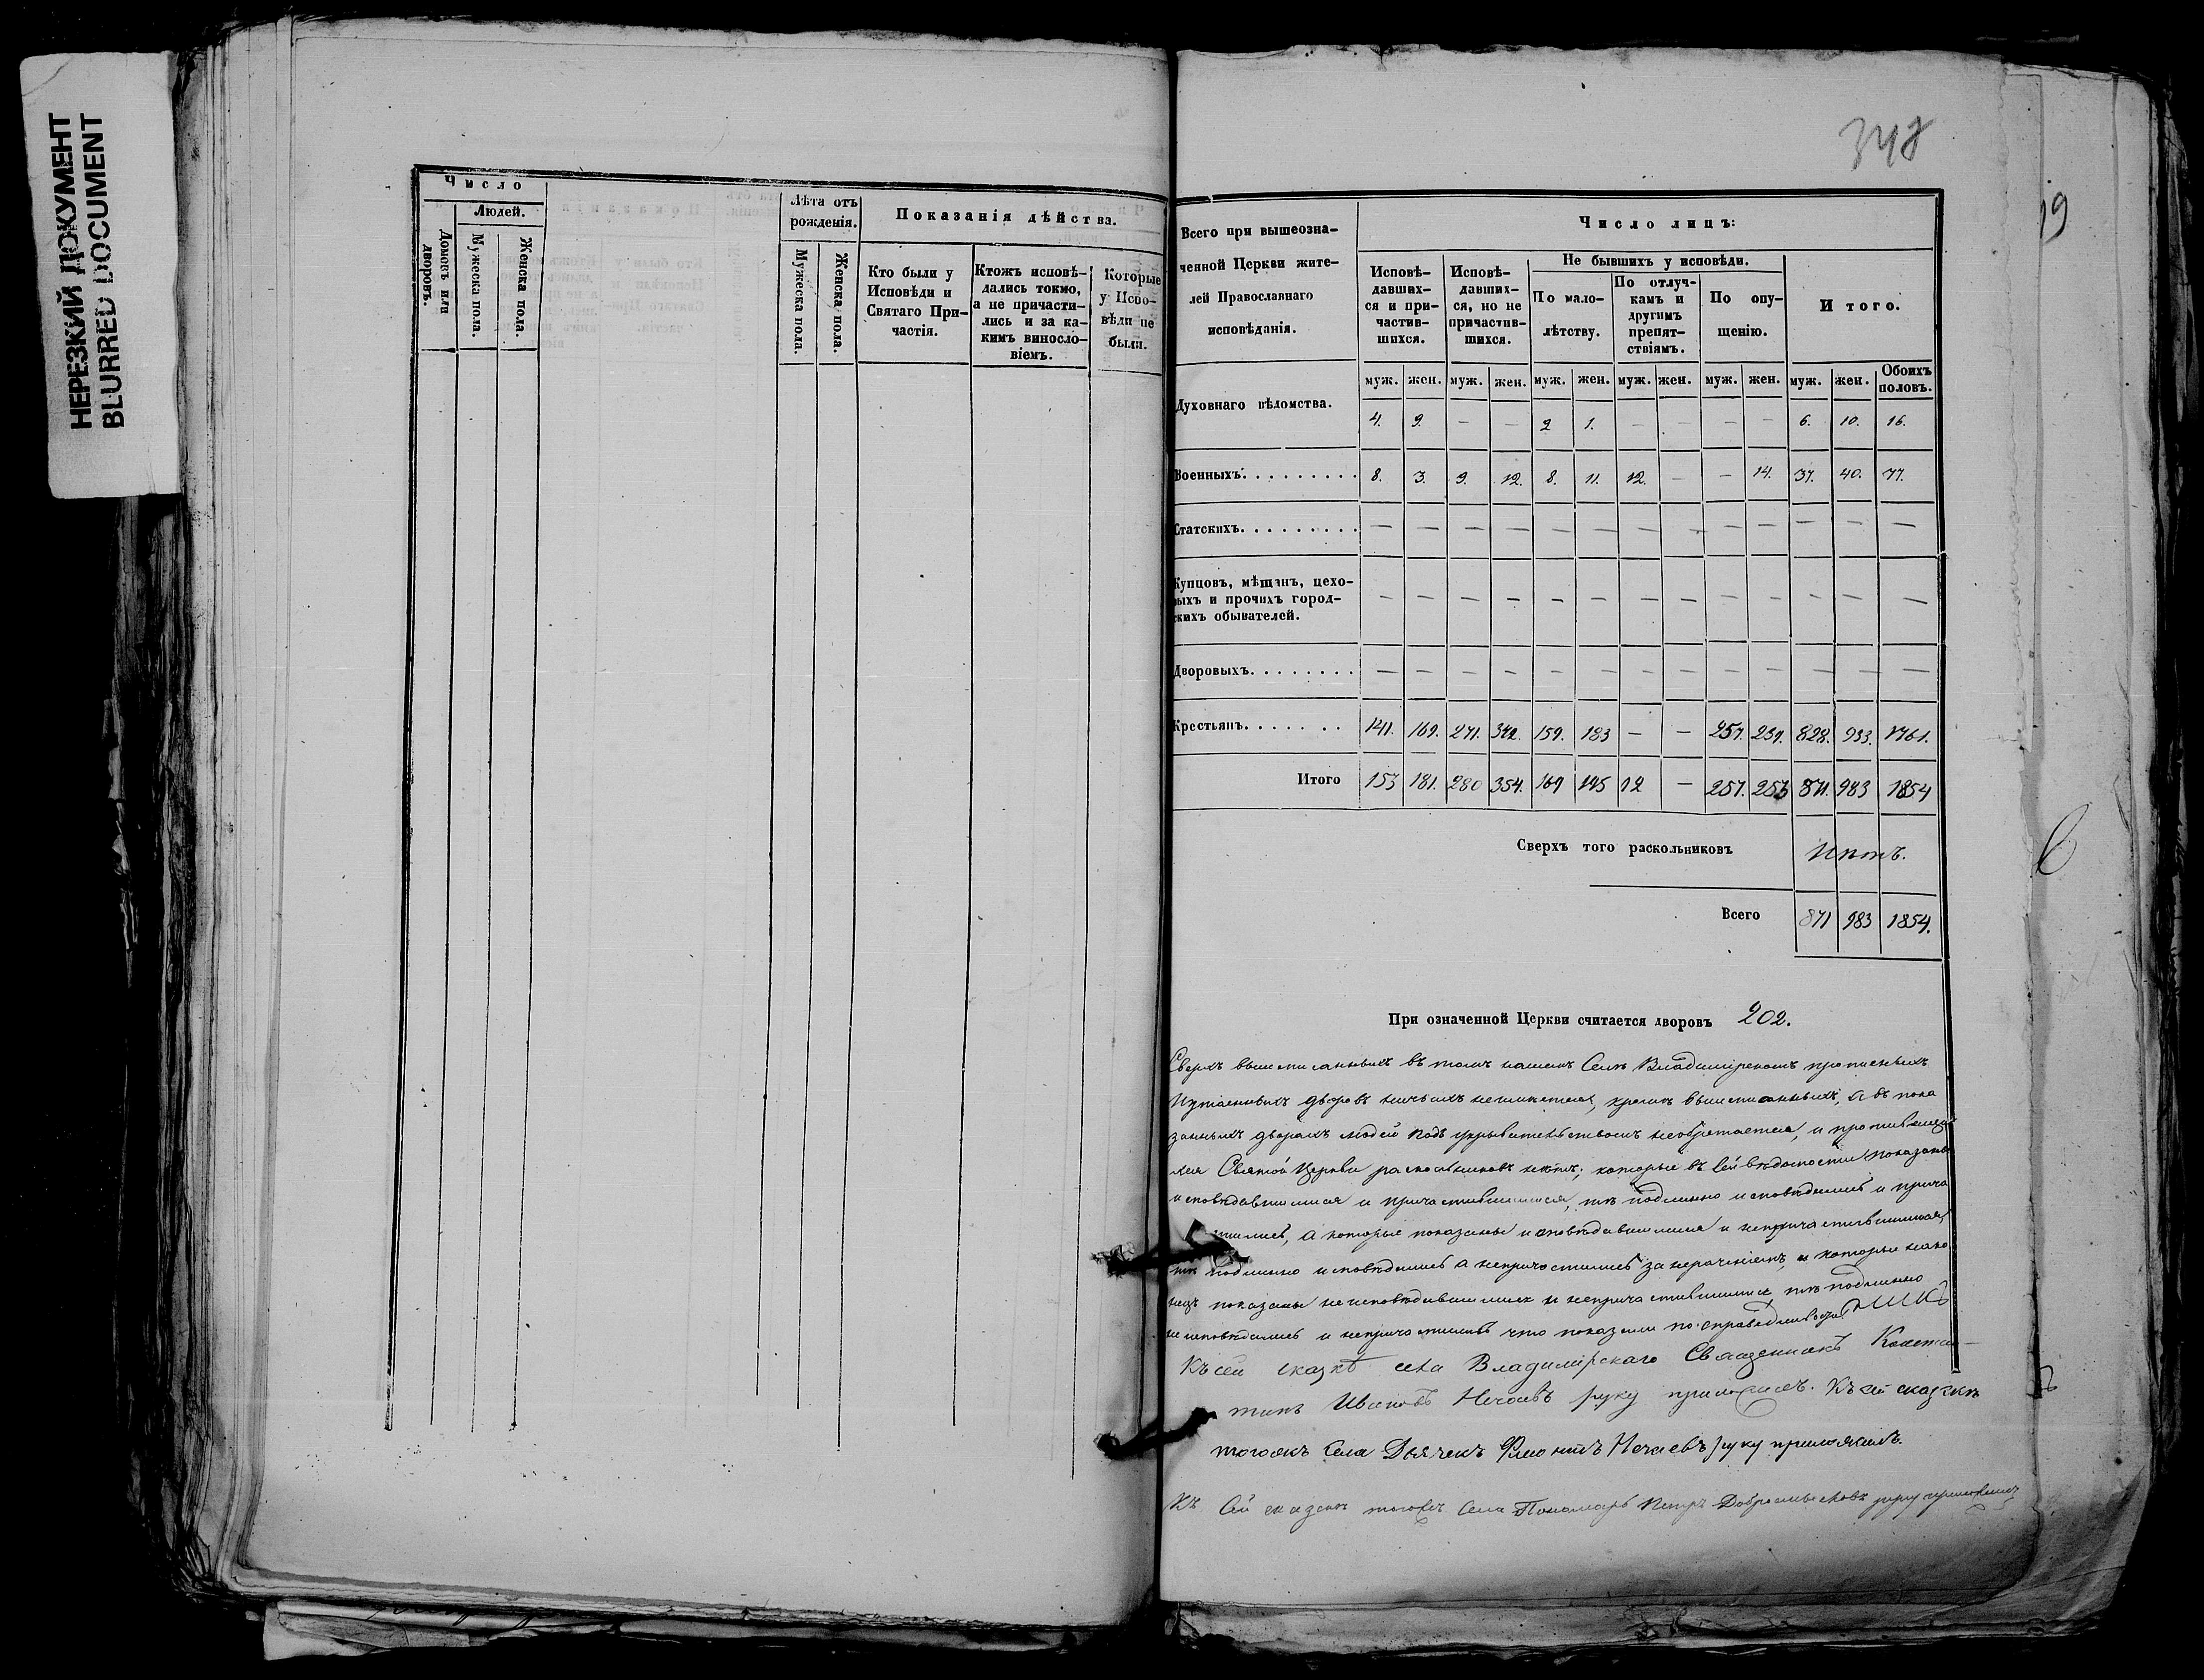 НЕРЕЗКИЙ ДОКУМЕНТ
BLURRED DOCUMENT
Число
Людей.
Домовъ или дворовъ.
Мужеска пола.
Женска пола.
Лѣта отъ рожденія.
Мужеска пола.
Женска пола.
Показанія дѣйства.
Кто были у Исповѣди и Святаго Причастія.
Ктожъ исповѣдались токмо, а не причастились и за какимъ винословіемъ.
Которые у Исповѣди не были.
348
19
Всего при вышеозначенной Церкви жителей Православнаго исповѣданія.
Число лицъ:
Исповѣдавшихся и причастившихся.
Исповѣдавшихся, но не причастившихся.
Не бывшихъ у исповѣди.
По малолѣтству.
По отлучкамъ и другимъ препятствіямъ.
По опущенію.
Итого.
муж. жен. муж. жен. муж. жен. муж. жен. муж. жен. муж. жен. Обоихъ половъ.
Духовнаго вѣдомства. 4. 9. — — 2 1. — — — — 6. 10. 16.
Военныхъ. 8. 3. 9. 12. 8. 11. 12. — — 14. 37. 40. 77.
Статскихъ. — — — — — — — — — — — — —
Купцовъ, мѣщанъ, цехо-
выхъ и прочихъ город-
скихъ обывателей. — — — — — — — — — — — — —
Дворовыхъ. — — — — — — — — — — — — —
Крестьянъ. 141. 169. 271. 342. 159. 183 — — 257. 239. 828. 933. 1761.
Итого 153 181. 280 354. 169 195 12 — 257. 253 871. 983 1854
Сверхъ того раскольниковъ Нѣтъ.
Всего 871 983 1854.
При означенной Церкви считается дворовъ 202.
Сверхъ вышеписанныхъ въ томъ нашемъ Селѣ Владимірскомъ прописныхъ
и утаенныхъ дворовъ ничьихъ неимѣется, кромѣ вышеписанныхъ, а въ пока
занныхъ дворахъ людей подъ укрывательствомъ необрѣтается, и противляющ
ихся Святой Церкви раскольниковъ нѣтъ; которые въ сей вѣдомости показаны
исповѣдавшимися и причастившимися, тѣ подлинно исповѣдались и прича
стились, а которые показаны исповѣдавшимися и непричастившимися,
тѣ подлинно исповѣдались а непричастились за нераченіемъ, а которые нако
нецъ показаны неисповѣдавшимися и непричастившимися, тѣ подлинно
неисповѣдались и непричастились что показали по справедливости.
Къ сей сказкѣ села Владимірскаго Священникъ Констан-
тинъ Ивановъ Нечаевъ руку приложилъ. Къ сей сказкѣ
тогожъ Села Дьячекъ Нечаевъ руку приложилъ.
Къ Сей сказкѣ тогожъ Села Пономарь Петръ Добросмысловъ руку приложилъ